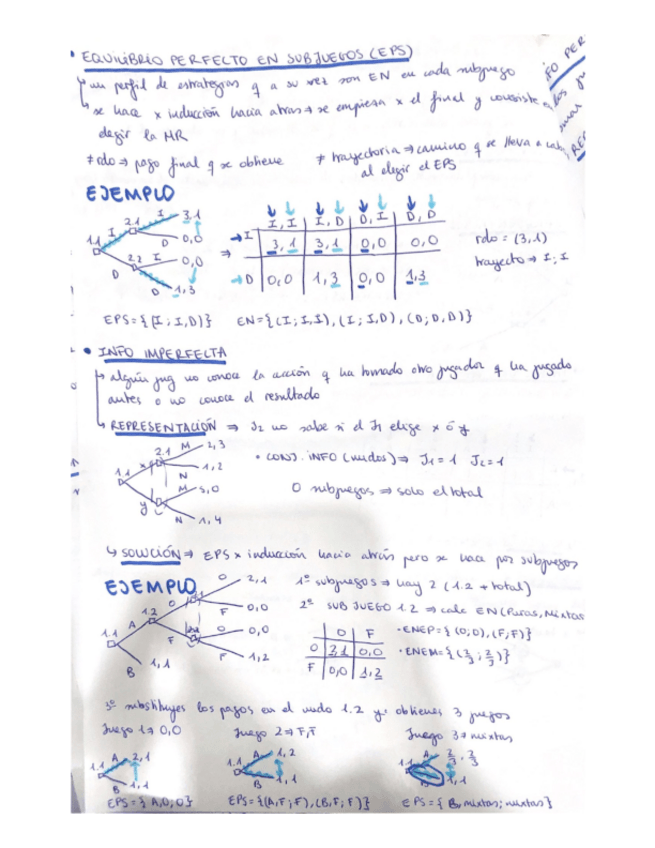 • EQUILIBRIO PERFECTO EN SUBJUEGOS (EPS)
↳ un perfil de estrategias q a su vez son EN en cada subjuego
↳ se hace x inducción hacia atrás → se empieza x el final y consiste en
elegir la MR
≠ rdo ⇒ pago final q se obtiene
≠ trayectoria ⇒ camino q se lleva a cabo
al elegir el EPS
EJEMPLO
1.1 I D 2.1 2.2
I 3,1
D 0,0
I 0,0
D 1,3
⇒
I,I I,D D,I D,D
→ I 3,1 3,1 0,0 0,0
→ D 0,0 1,3 0,0 1,3
rdo = (3,1)
trayecto ⇒ I; I
EPS = {(I; I,D)} EN = {(I; I,I), (I; I,D), (D; D,D)}
• INFO IMPERFECTA
↳ algún jug no conoce la acción q ha tomado otro jugador q ha jugado
antes o no conoce el resultado
↳ REPRESENTACIÓN ⇒ J2 no sabe si el J1 elige x ó y
1.1 x y 2.1
M 2,3
N 1,2
M 5,0
N 1,4
• CONJ. INFO (nudos) ⇒ J1 = 1 J2 = 1
0 subjuegos ⇒ solo el total
↳ SOLUCIÓN ⇒ EPS x inducción hacia atrás pero se hace por subjuegos
EJEMPLO
1.1 A B 1.2 O F
O 2,1
F 0,0
O 0,0
F 1,2
1,1
1º subjuegos ⇒ hay 2 (1.2 + total)
2º SUBJUEGO 1.2 ⇒ calc EN (Puras, Mixtas
O F
O 2,1 0,0
F 0,0 1,2
• ENEP = {(O;O), (F;F)}
3º substituyes los pagos en el nudo 1.2 y obtienes 3 juegos
Juego 1 ⇒ O,O
Juego 2 ⇒ F,F
Juego 3 ⇒ mixtas
1.1 A 2,1
B 1,1
1.1 A 1,2
B 1,1
1.1 A 2/3, 2/3
1,1
EPS = { A,O; O}
EPS = {(A,F; F), (B,F; F)}
EPS = { B, mixtas; mixtas}